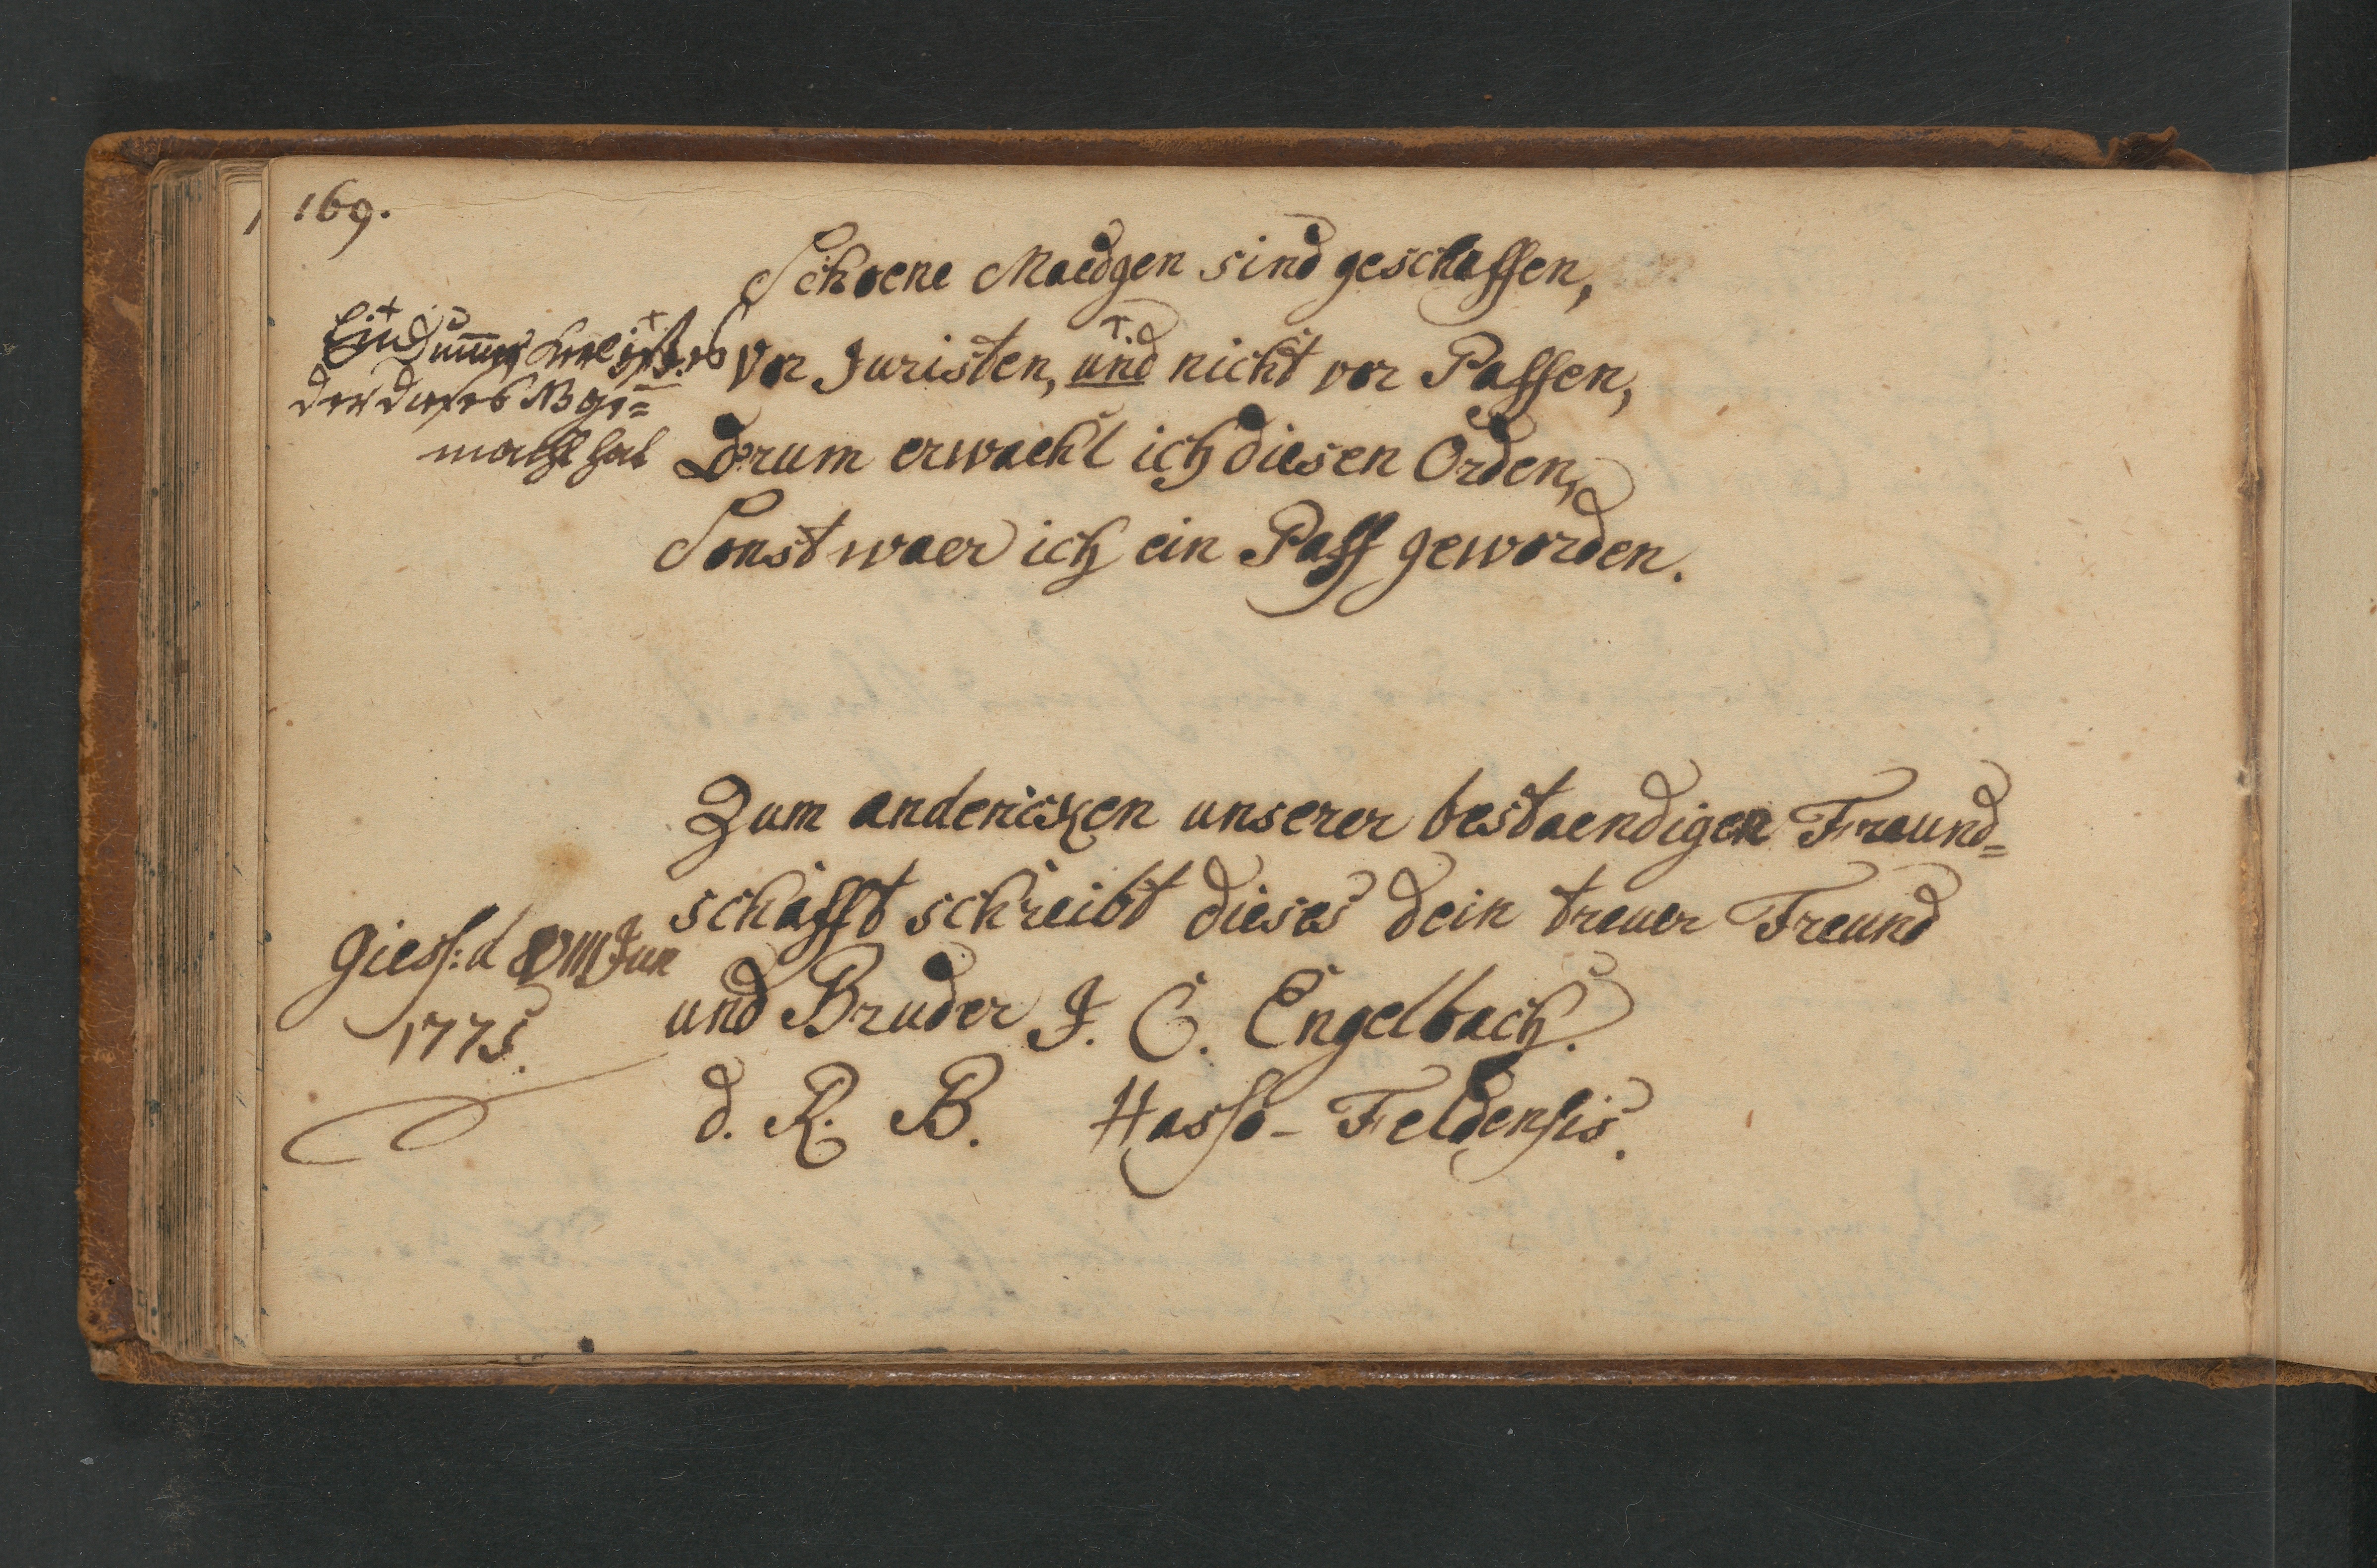 169.
Schoene Maedgen sind geschaffen,
vor Juristen, und nicht vor Paffen,
Drum erwaehl ich diesen Orden,
Sonst waer ich ein Paff geworden.
Ein dummer Kerl ist es
der dieses NB ge=
macht hat
Zum andencken unserer bestaendigen Freund=
schafft schreibt dieses dein treuer Freund
und Bruder J. C. Engelbach.
d. R. B. Hasso-Feldensis.
Giess: d VIII Jun
1775.